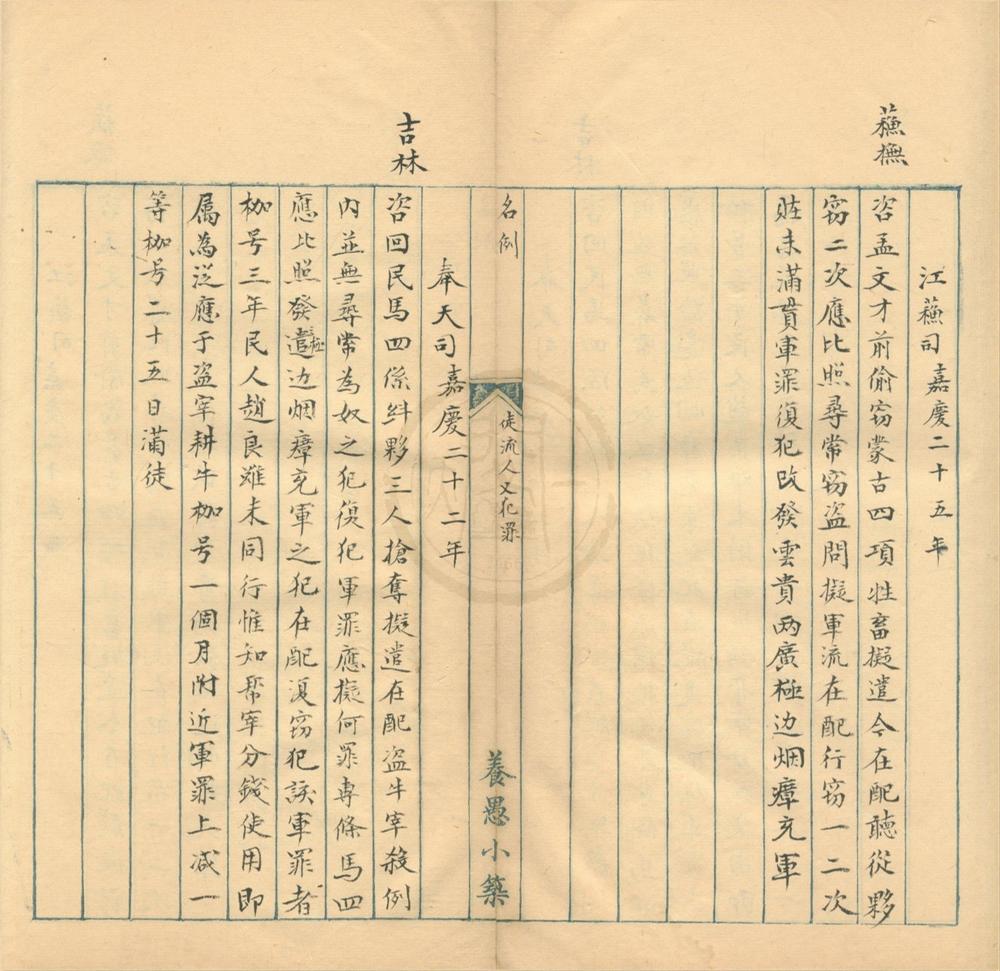 蘓撫
江蘓司嘉慶二十五年
咨孟文才前偷窃蒙古四項牲畜擬遣今在配聽從夥
窃二次應比照尋常窃盗問擬軍流在配行窃一二次
賍未滿貫軍罪復犯改發雲貴两廣極边烟瘴充軍
名例
徒流人又犯罪
養愚小築
吉林
奉天司嘉慶二十二年
咨回民馬四係糾夥三人搶奪擬遣在配盗牛宰殺例
内並無尋常為奴之犯復犯軍罪應擬何罪専條馬四
應比照發遣極边烟瘴充軍之犯在配復窃犯該軍罪者
枷号三年民人趙良雖未同行惟知帮宰分錢使用即
属為从應于盗宰耕牛枷号一個月附近軍罪上减一
等枷号二十五日滿徒